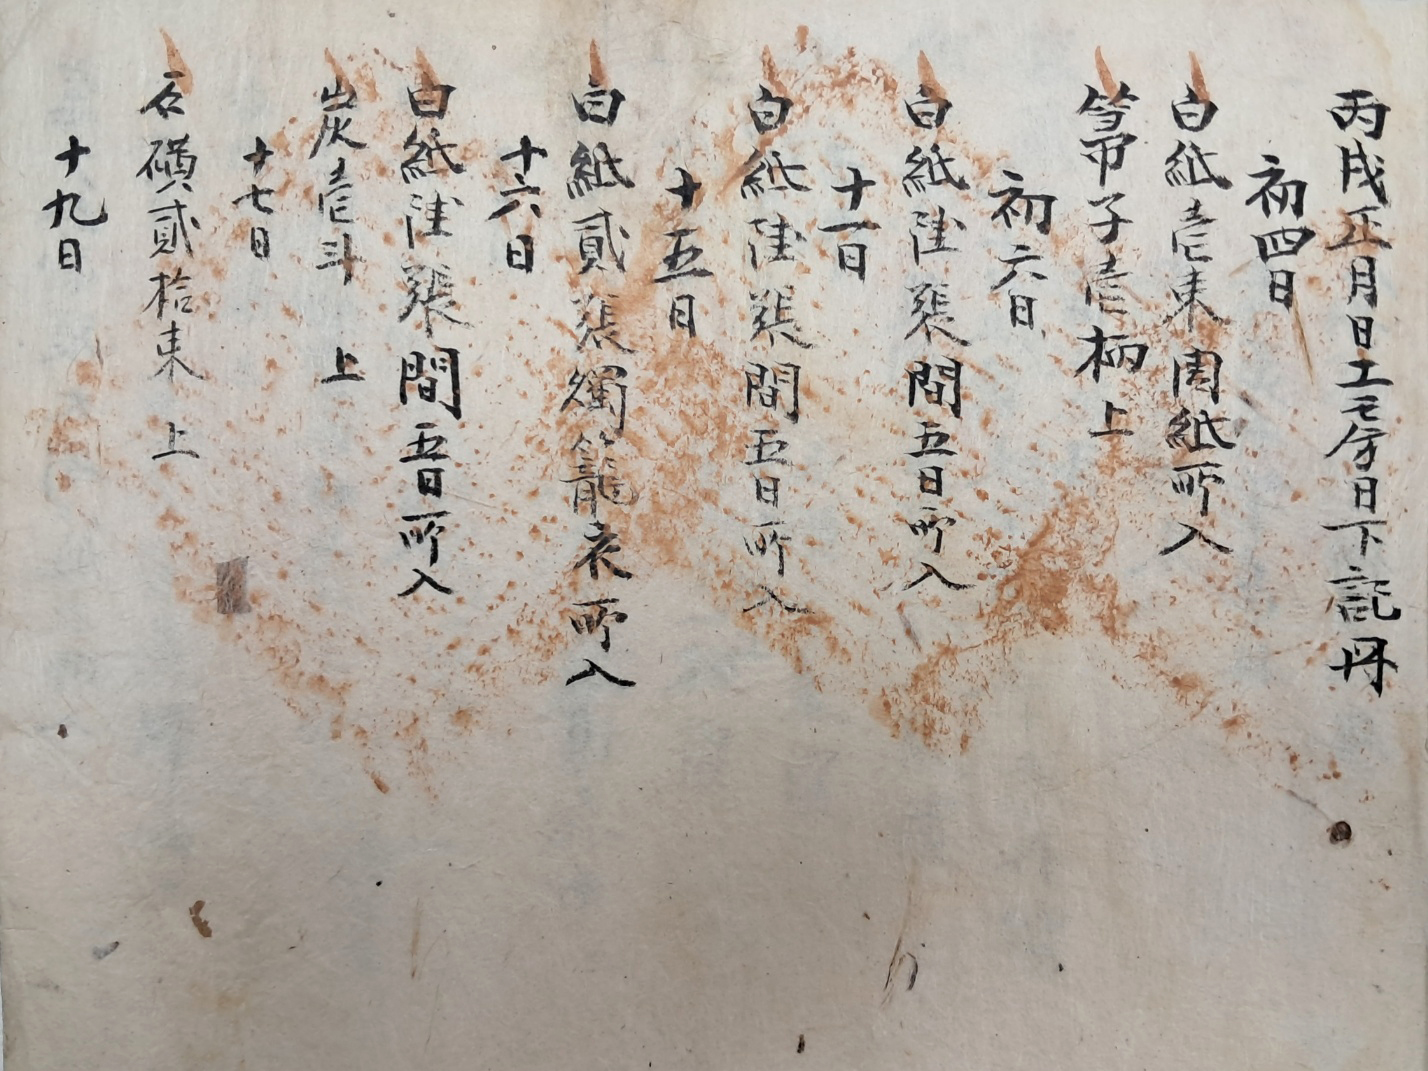 丙戌正月日工色分日下記冊
初四日
白紙壱束周紙所入
箒子壱柄上
初六日
白紙陸張間五日所入
十一日
白紙陸張間五日所入
十五日
白紙貳張燭籠衣所入
十六日
白紙陸張間五日所入
炭壱斗 上
十七日
石磺貳拾束 上
十九日